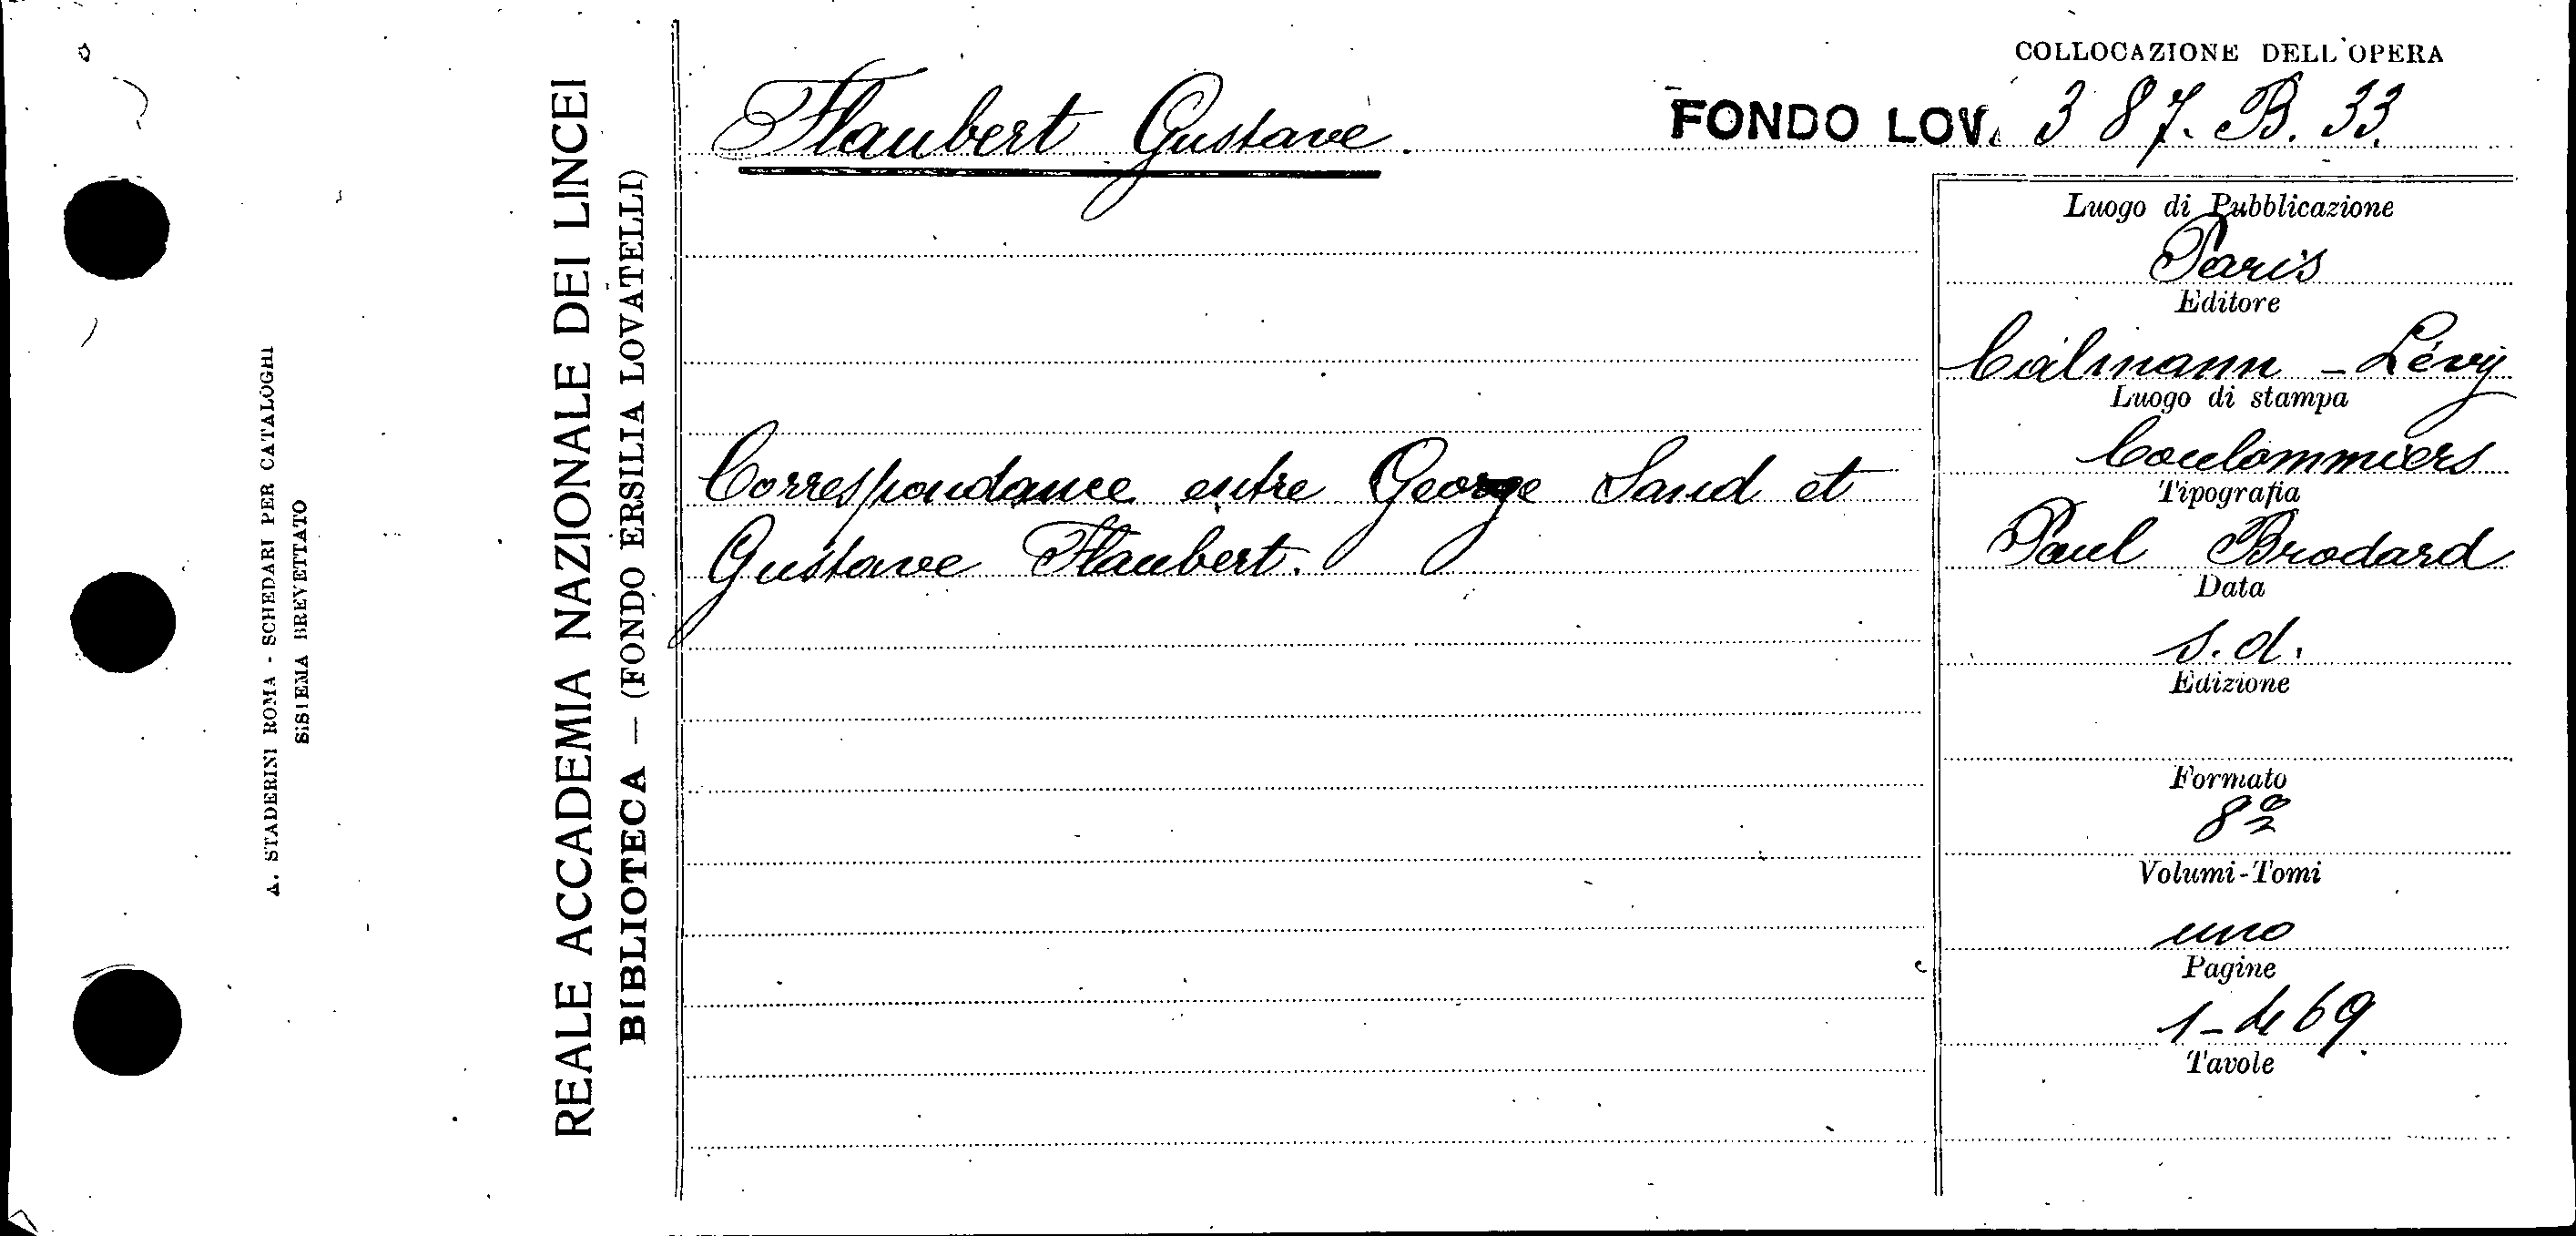 A. STADERINI ROMA - SCHEDARI PER CATALOGHI
SISTEMA BREVETTATO
REALE ACCADEMIA NAZIONALE DEI LINCEI
BIBLIOTECA — (FONDO ERSILIA LOVATELLI)
COLLOCAZIONE DELL'OPERA
Flaubert Gustave.
FONDO LOV. 387. B. 33.
Correspondance entre George Sand et
Gustave Flaubert.
Luogo di Pubblicazione
Paris
Editore
Calmann - Lévy
Luogo di stampa
Coulommiers
Tipografia
Paul Brodard
Data
s. d.
Edizione
Formato
8º
Volumi-Tomi
uno
Pagine
1-469.
Tavole